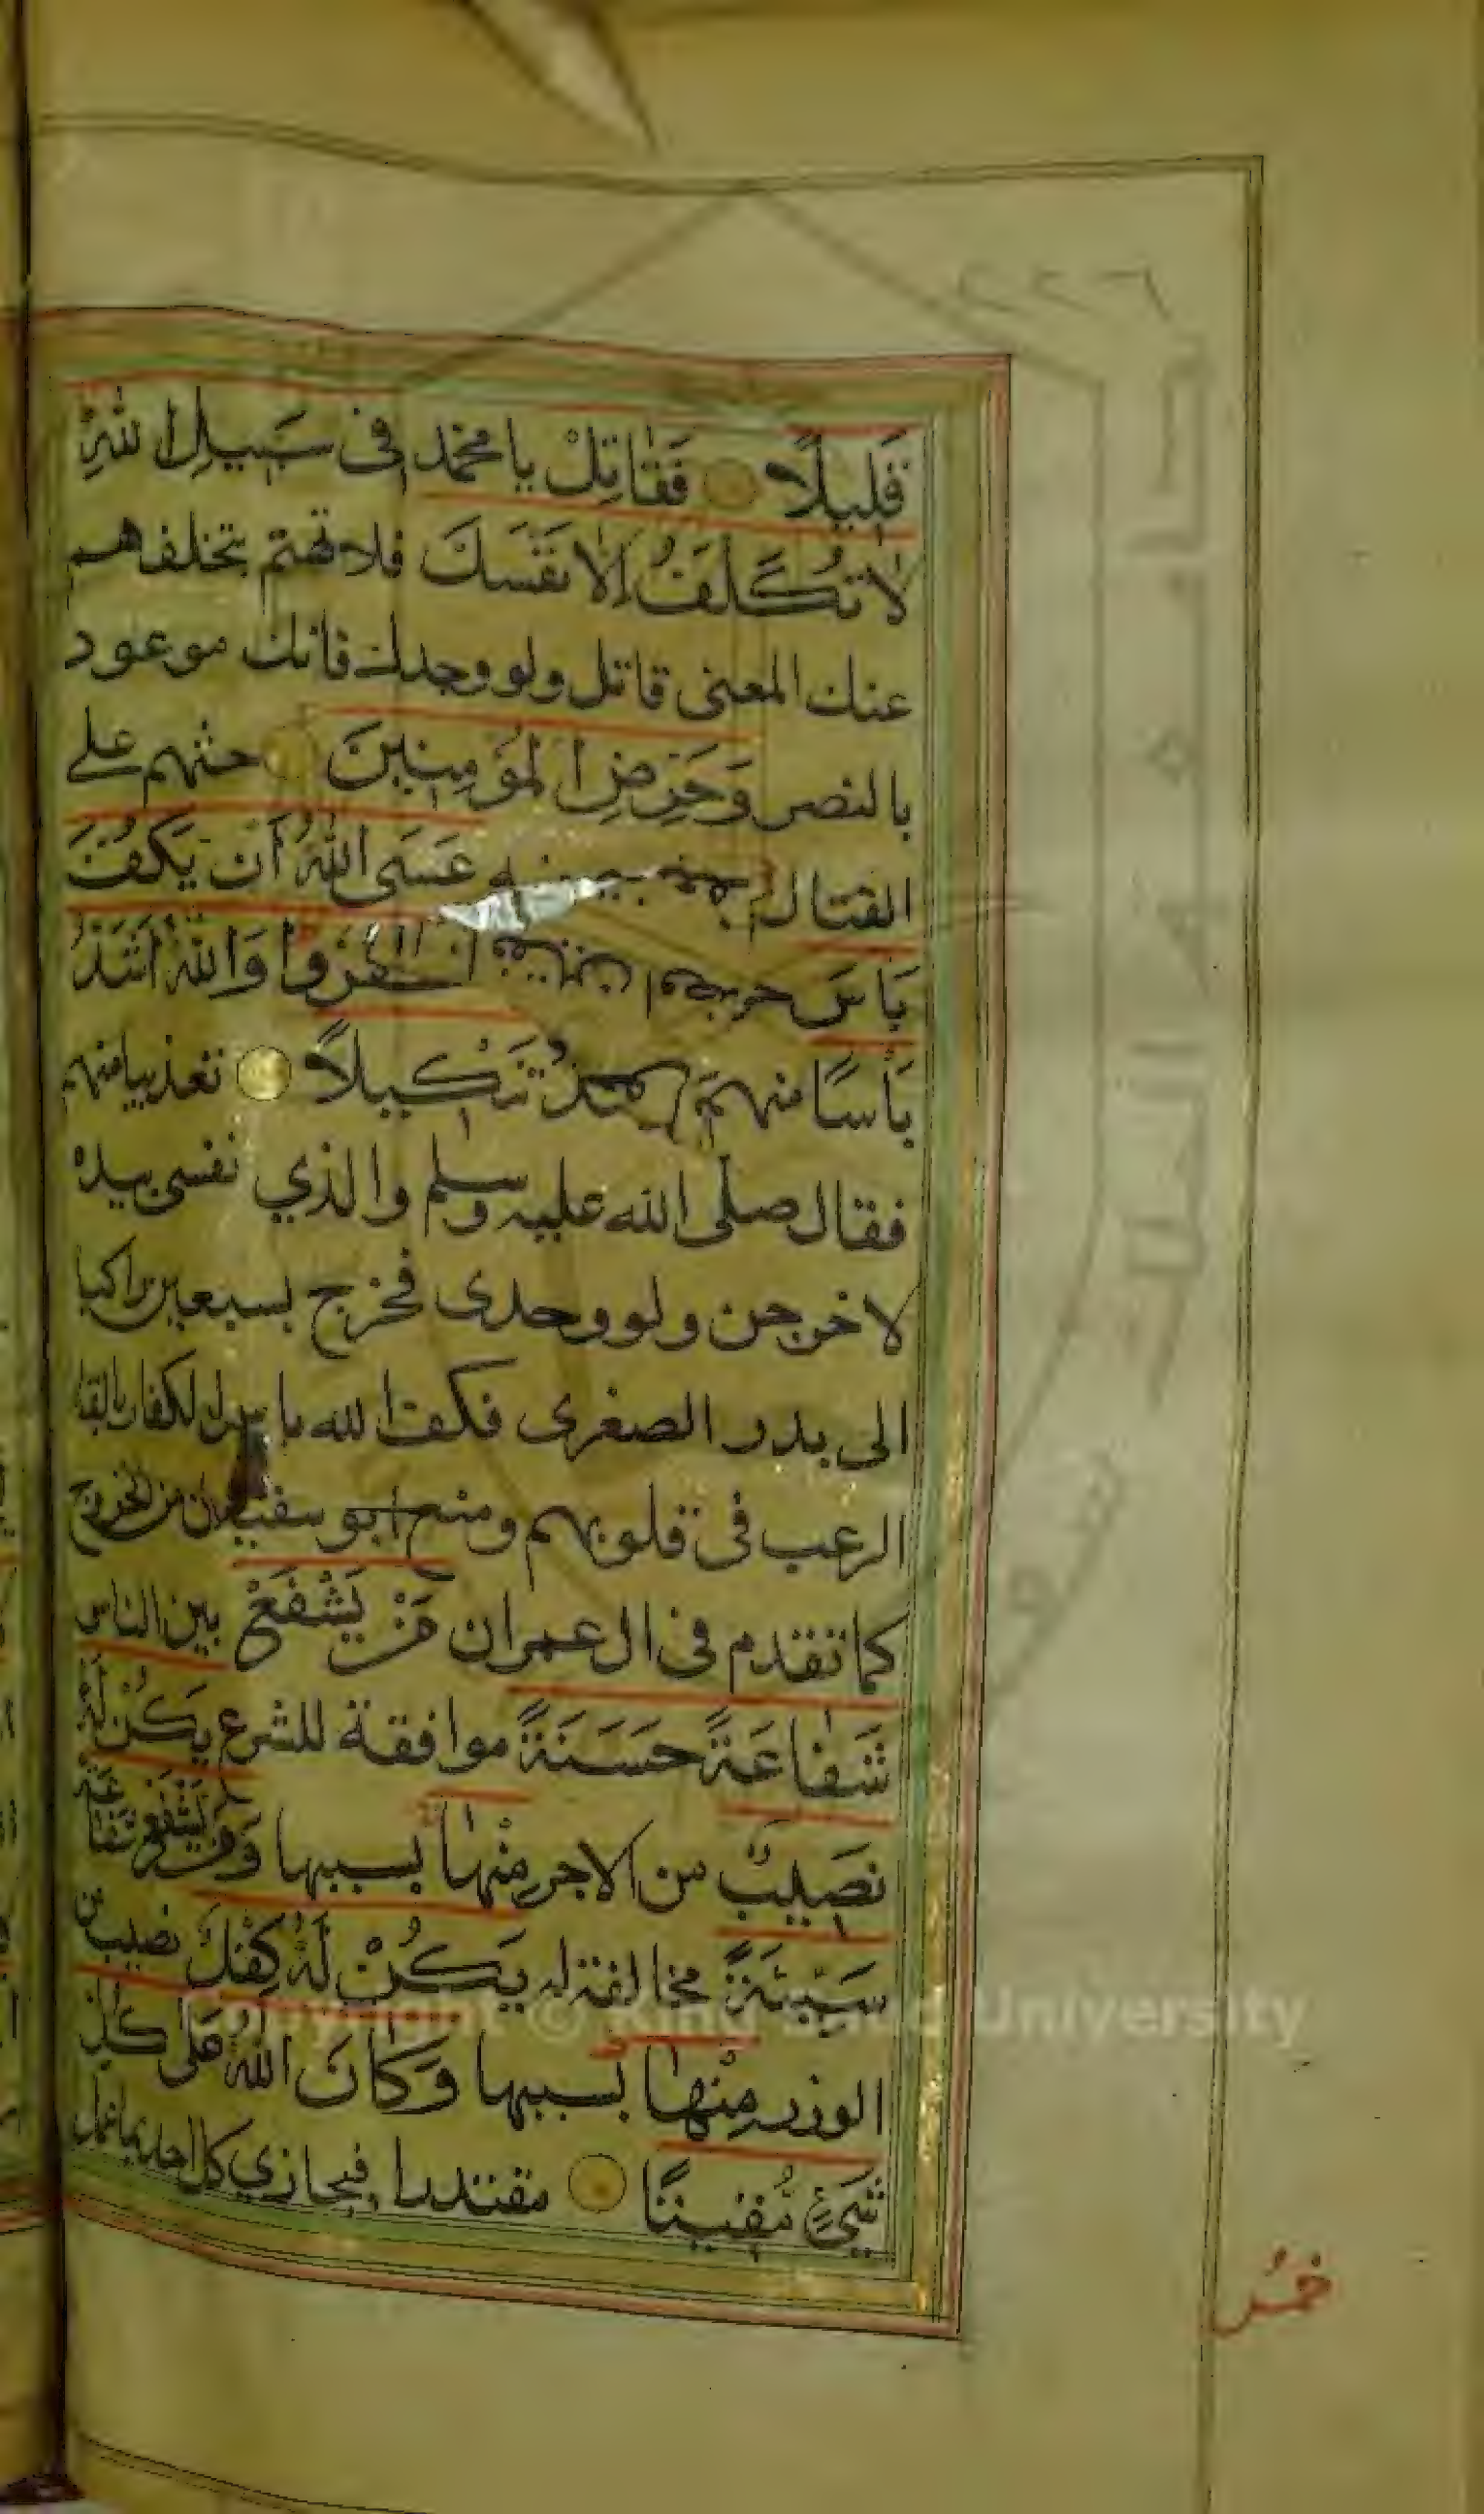 ٢٢٦
قَلِيلًا فَقَاتِلْ يا محمد فِى سَبِيلِ اللهِ
لَا تُكَلَّفُ إِلَّا نَفْسَكَ فلا تهتم بتخلفهم
عنك المعنى قاتل ولو وحدك فانك موعود
بالنصر وَحَرِّضِ الْمُؤْمِنِينَ حثهم على
القتال عَسَى اللهُ أَن يَكُفَّ
بَأْسَ كَفَرُوا وَاللهُ أَشَدُّ
بَأْسًا منهم تَنْكِيلًا تعذيبا منهم
فقال صلى الله عليه وسلم والذي نفسى بيده
لاخرجن ولو وحدى فخرج بسبعين راكبا
الى بدر الصغرى فكف الله باس الكفار بالقا
الرعب فى قلوبهم ومنع ابو سفيان من الخروج
كما تقدم فى ال عمران مَنْ يَشْفَعْ بين الناس
شَفَاعَةً حَسَنَةً موافقة للشرع يَكُنْ لَهُ
نَصِيبٌ من الاجر مِنْهَا بسببها وَمَنْ يَشْفَعْ شَفَاعَةً
سَيِّئَةً مخالفة له يَكُنْ لَهُ كِفْلٌ نصيب من
الوزر مِنْهَا بسببها وَكَانَ اللهُ عَلَى كُلِّ
شَيْءٍ مُقِيتًا مقتدرا فيجازي كل احد بما عمل
خمس
جامعة الملك سعود
Copyright © King Saud University